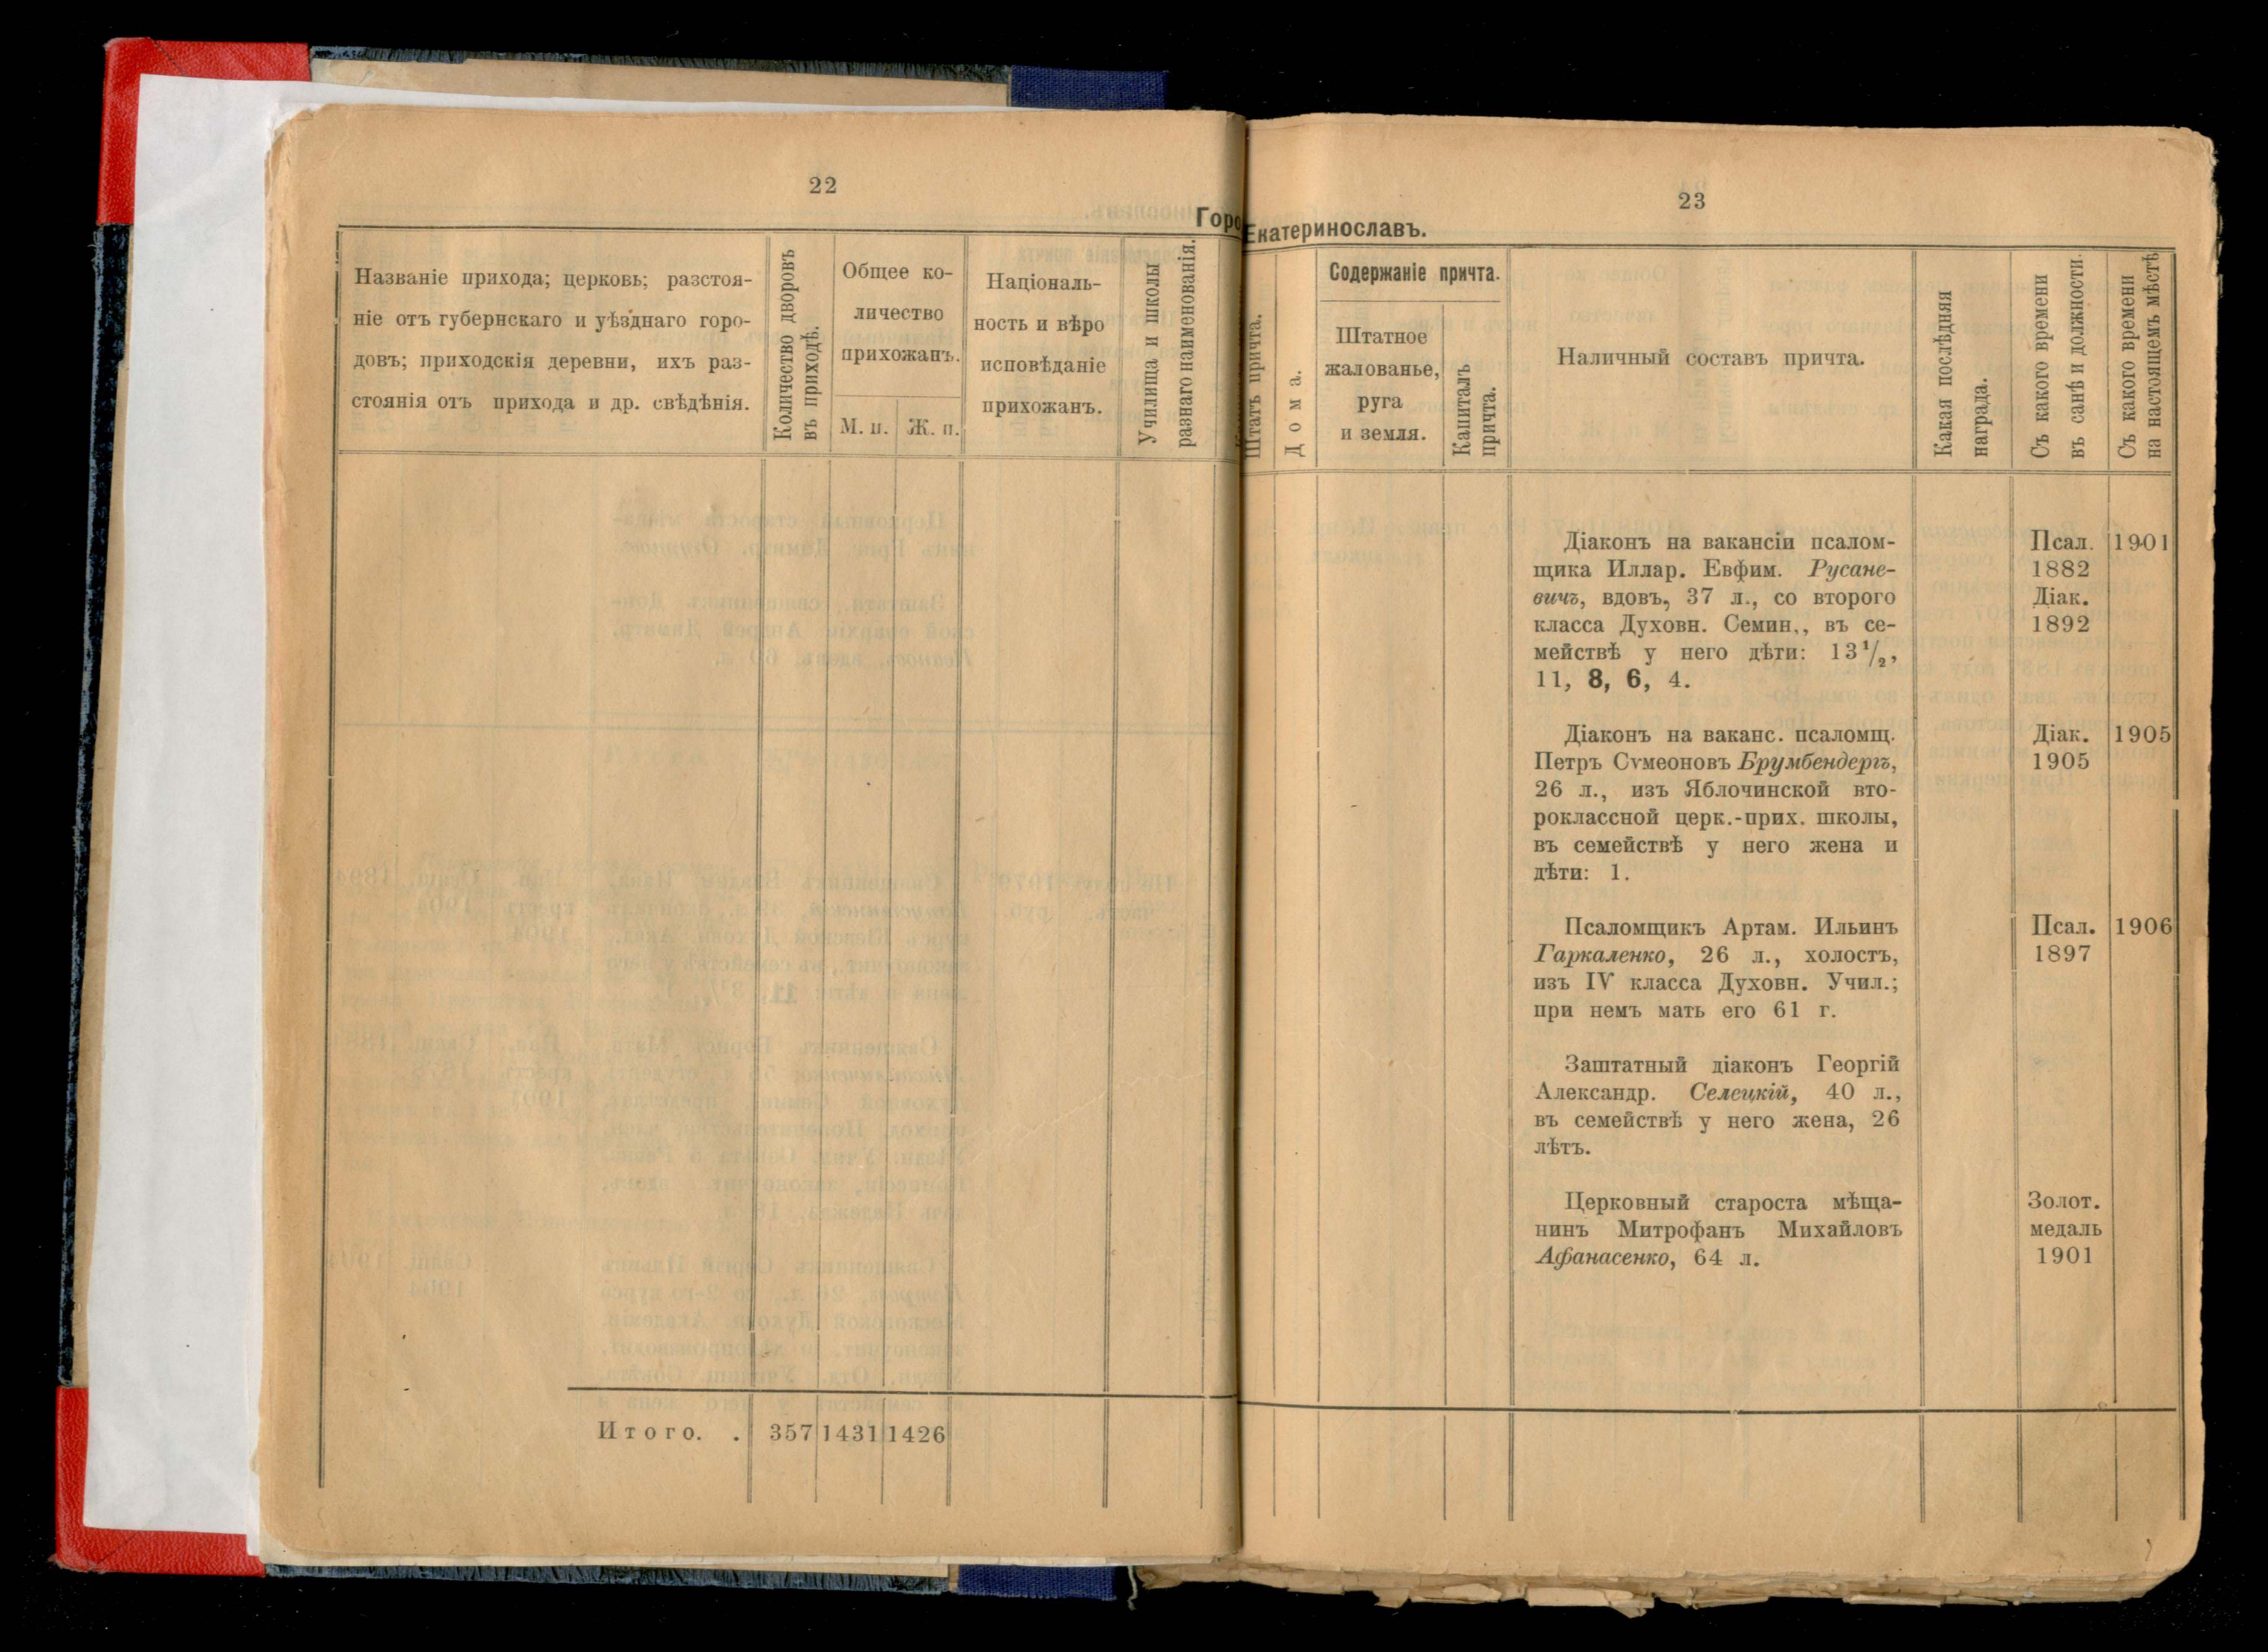 22
Горо
Названіе прихода; церковь; разстоя-
ніе отъ губернскаго и уѣзднаго горо-
довъ; приходскія деревни, ихъ раз-
стоянія отъ прихода и др. свѣдѣнія.
Количество дворовъ
въ приходѣ.
Общее ко-
личество
прихожанъ.
М. п.
Ж. п.
Націоналъ-
ность и вѣро
исповѣданіе
прихожанъ.
Училища и школы
разнаго наименованія.
Итого. . 357 1431 1426
23
Екатеринославъ.
Штатъ причта.
Дома.
Содержаніе причта.
Штатное
жалованье,
руга
и земля.
Капиталъ
причта.
Наличный составъ причта.
Какая послѣдняя
награда.
Съ какого времени
въ санѣ и должности.
Съ какого времени
на настоящемъ мѣстѣ
Діаконъ на вакансіи псалом-
щика Иллар. Евфим. Русане-
вичъ, вдовъ, 37 л., со второго
класса Духовн. Семин., въ се-
мействѣ у него дѣти: 13 1/2,
11, 8, 6, 4.
Псал.
1882
Діак.
1892
1901
Діаконъ на ваканс. псаломщ.
Петръ Сѵмеоновъ Брумбендергъ,
26 л., изъ Яблочинской вто-
роклассной церк.-прих. школы,
въ семействѣ у него жена и
дѣти: 1.
Діак.
1905
1905
Псаломщикъ Артам. Ильинъ
Гаркаленко, 26 л., холостъ,
изъ IV класса Духовн. Учил.;
при немъ мать его 61 г.
Псал.
1897
1906
Заштатный діаконъ Георгій
Александр. Селецкій, 40 л.,
въ семействѣ у него жена, 26
лѣтъ.
Церковный староста мѣща-
нинъ Митрофанъ Михайловъ
Афанасенко, 64 л.
Золот.
медаль
1901